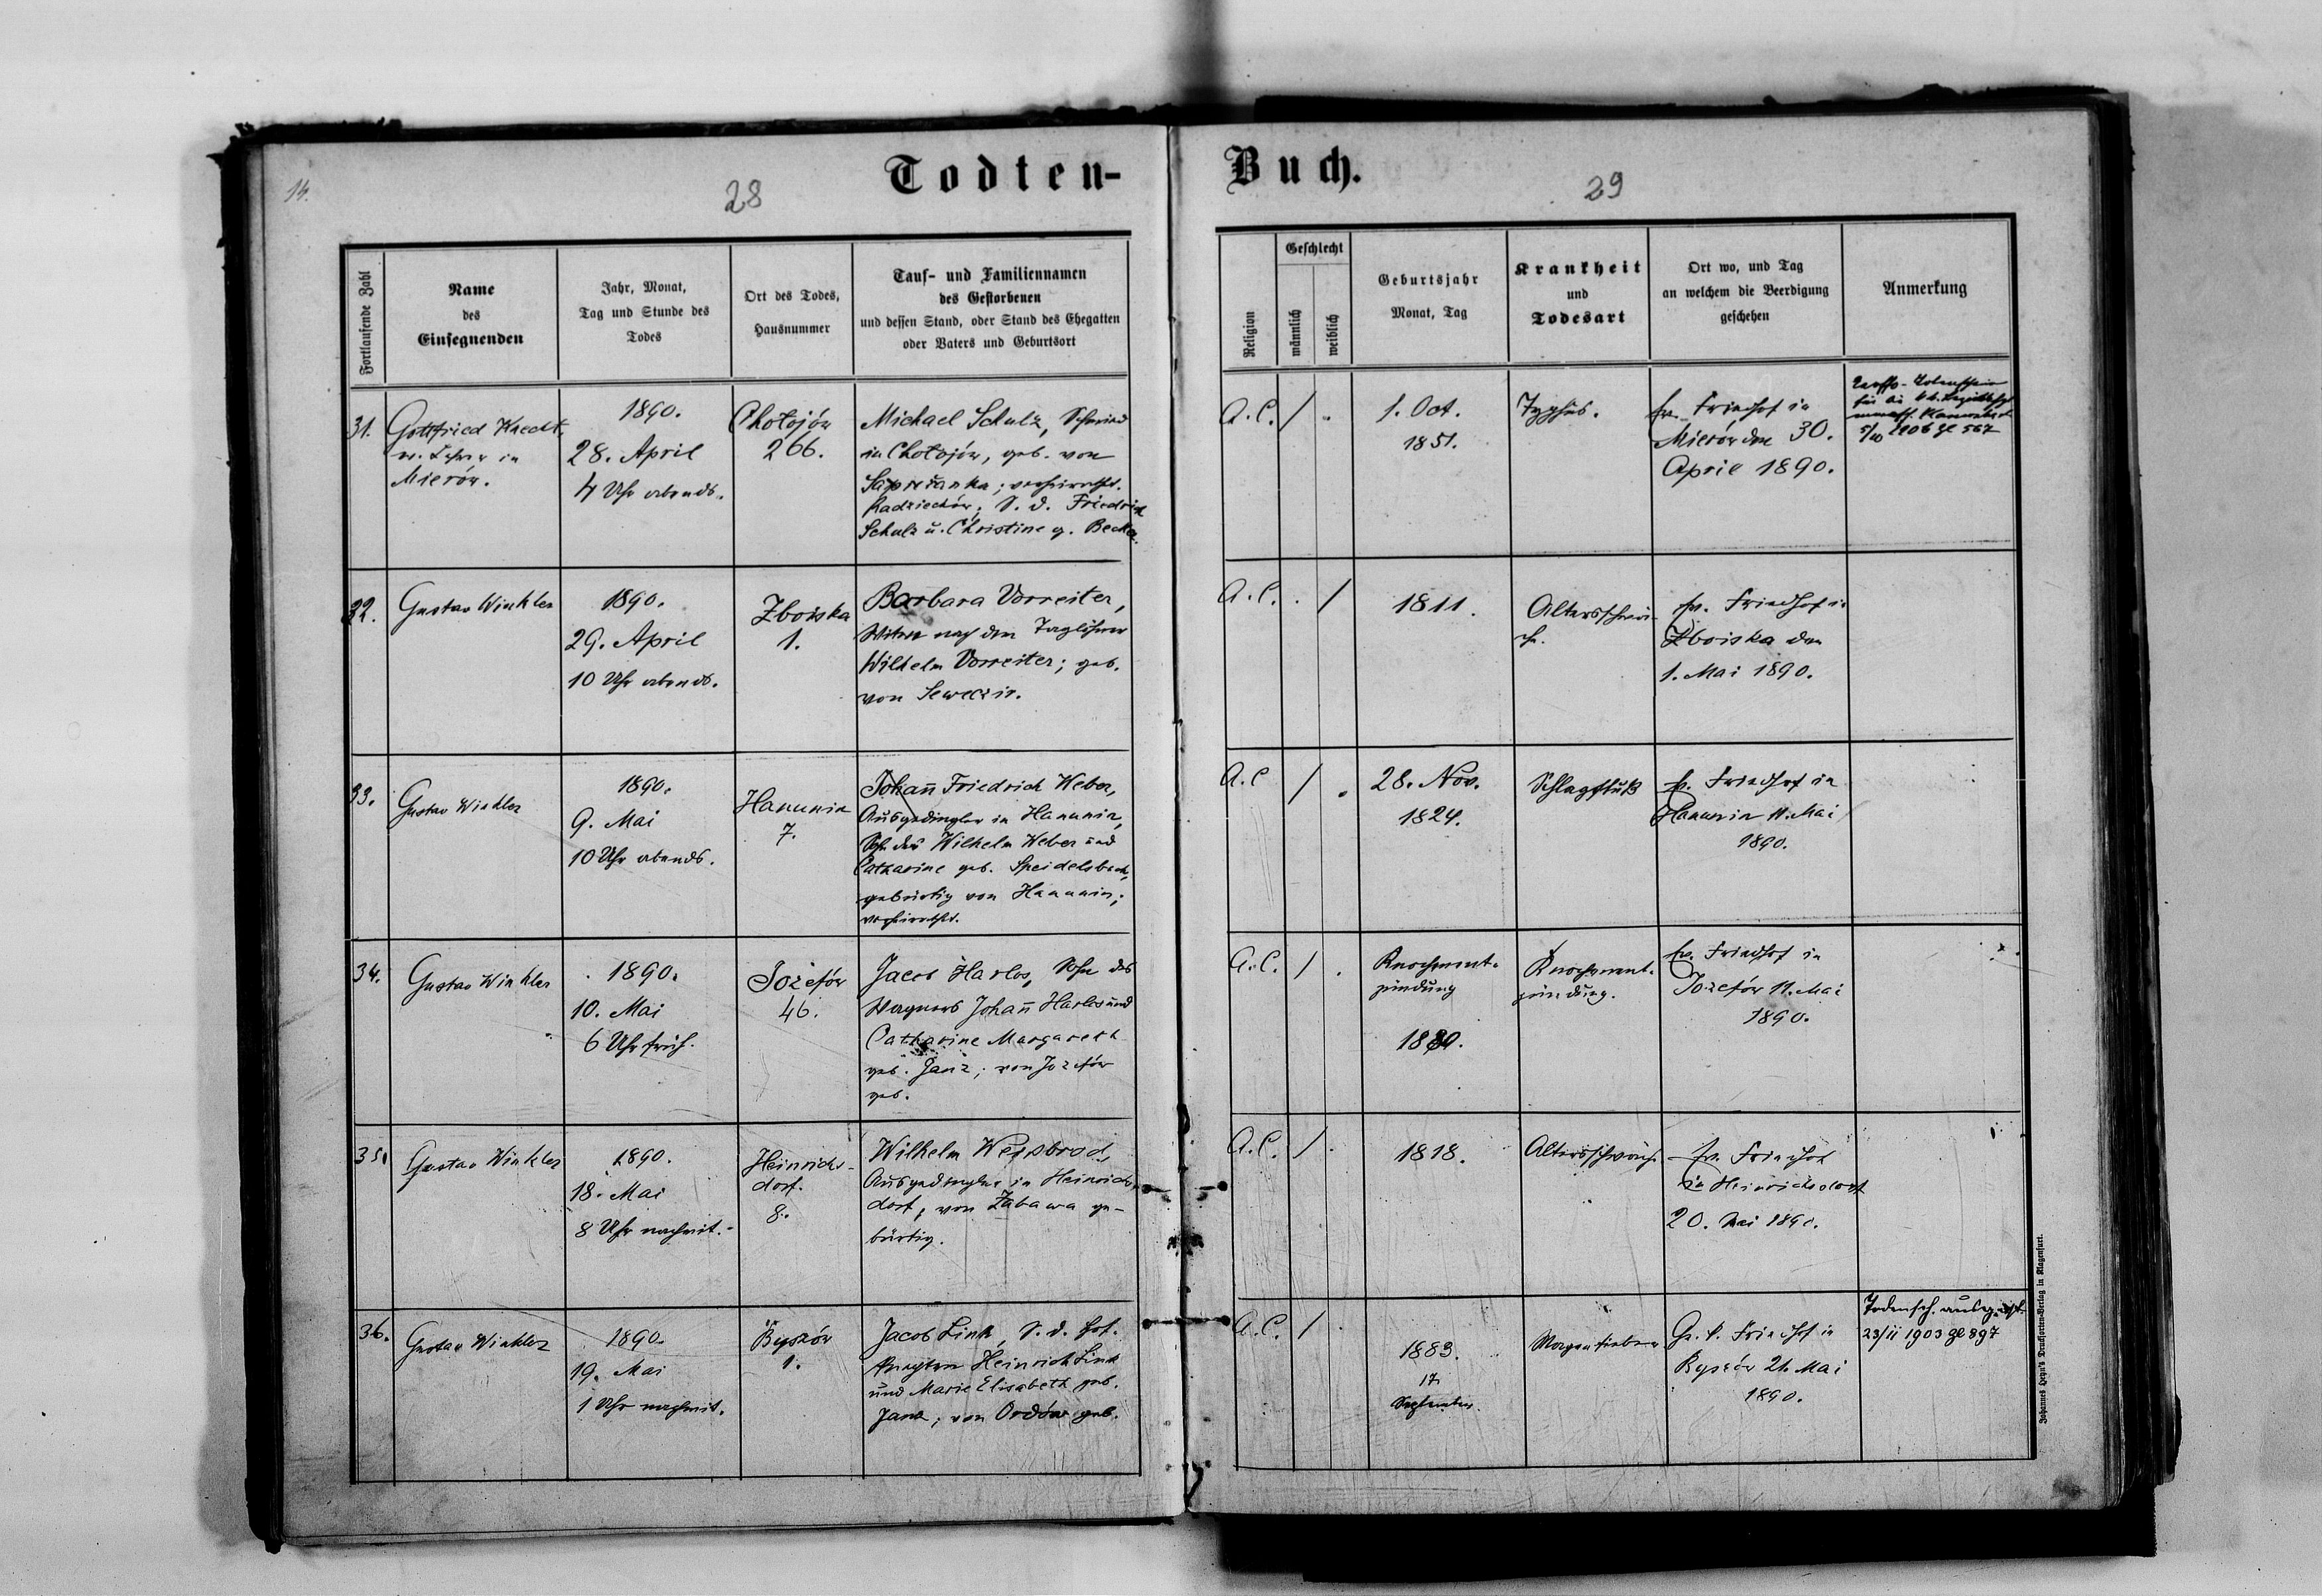 14.
28
Todten-
Buch.
29
Fortlaufende Zahl
Name
des
Einsegnenden
Jahr, Monat,
Tag und Stunde des
Todes
Ort des Todes,
Hausnummer
Tauf- und Familiennamen
des Gestorbenen
und dessen Stand, oder Stand des Ehegatten
oder Vaters und Geburtsort
Religion
Geschlecht
männlich
weiblich
Geburtsjahr
Monat, Tag
Krankheit
und
Todesart
Ort wo, und Tag
an welchem die Beerdigung
geschehen
Anmerkung
31.
Gottfried Knecht,
ev. Lehrer in
Mierów.
1890.
28. April
4 Uhr abends.
Chołojów
266.
Michael Schulz, Schmied
in Chołojów, geb. von
Sapieżanka; verheirathet.
Radziechów; S. d. Friedrich
Schulz u. Christine g. Becker.
A.C.
/
1. Oct.
1851.
Typhus.
ev. Friedhof in
Mierów den 30.
April 1890.
5/10 1906 Zl 567
32.
Gustav Winkler
1890.
29. April
10 Uhr abends.
Zboiska
1.
Barbara Vorreiter,
Witwe nach dem Taglöhner
Wilhelm Vorreiter; geb.
von
A.C.
/
1811.
Altersschwä-
che.
ev. Friedhof in
Zboiska den
1. Mai 1890.
33.
Gustav Winkler
1890.
9. Mai
10 Uhr abends.
Hanunin
7.
Johañ Friedrich Weber,
Ausgedingler in Hanunin,
Sohn des Wilhelm Weber und
Catharine geb. Speidelsbach,
gebürtig von Hanunin;
verheirathet.
A.C
/
28. Nov.
1824.
Schlagfluß
ev. Friedhof in
Hanunin 11. Mai
1890.
34.
Gustav Winkler
1890.
10. Mai
6 Uhr früh.
Józefów
46.
Jacob Harlos, Sohn des
Wagners Johañ Harlos und
Catharine Margareth
geb. Janz; von Józefów
geb.
A.C.
/
Knochenent-
zündung
Knochenent-
zündung.
ev. Friedhof in
Józefów 11. Mai
1890.
35.
Gustav Winkler
1890.
18. Mai
8 Uhr nachmit.
Heinrichs-
dorf.
8.
Wilhelm Weisbrod,
Ausgedingler in Heinrichs-
dorf, von Zabawa ge-
bürtig.
A.C.
/
1818.
Altersschwäche
ev. Friedhof
in Heinrichsdorf
20. Mai 1890.
36.
Gustav Winkler
1890.
19. Mai
1 Uhr nachmit.
Byszów
1.
Jacob Link, S. d. Gut-
Heinrich Link
und Marie Elisabeth geb.
Janz; von Ordów geb.
A.C.
/
1883.
17.
September.
Magenfieber
Gr. k. Friedhof in
Byszów 21. Mai
1890.
Todensch. ausgest.
23/II 1903 Zl 897
Johannes Heyn's Drucksorten-Verlag in Klagenfurt.